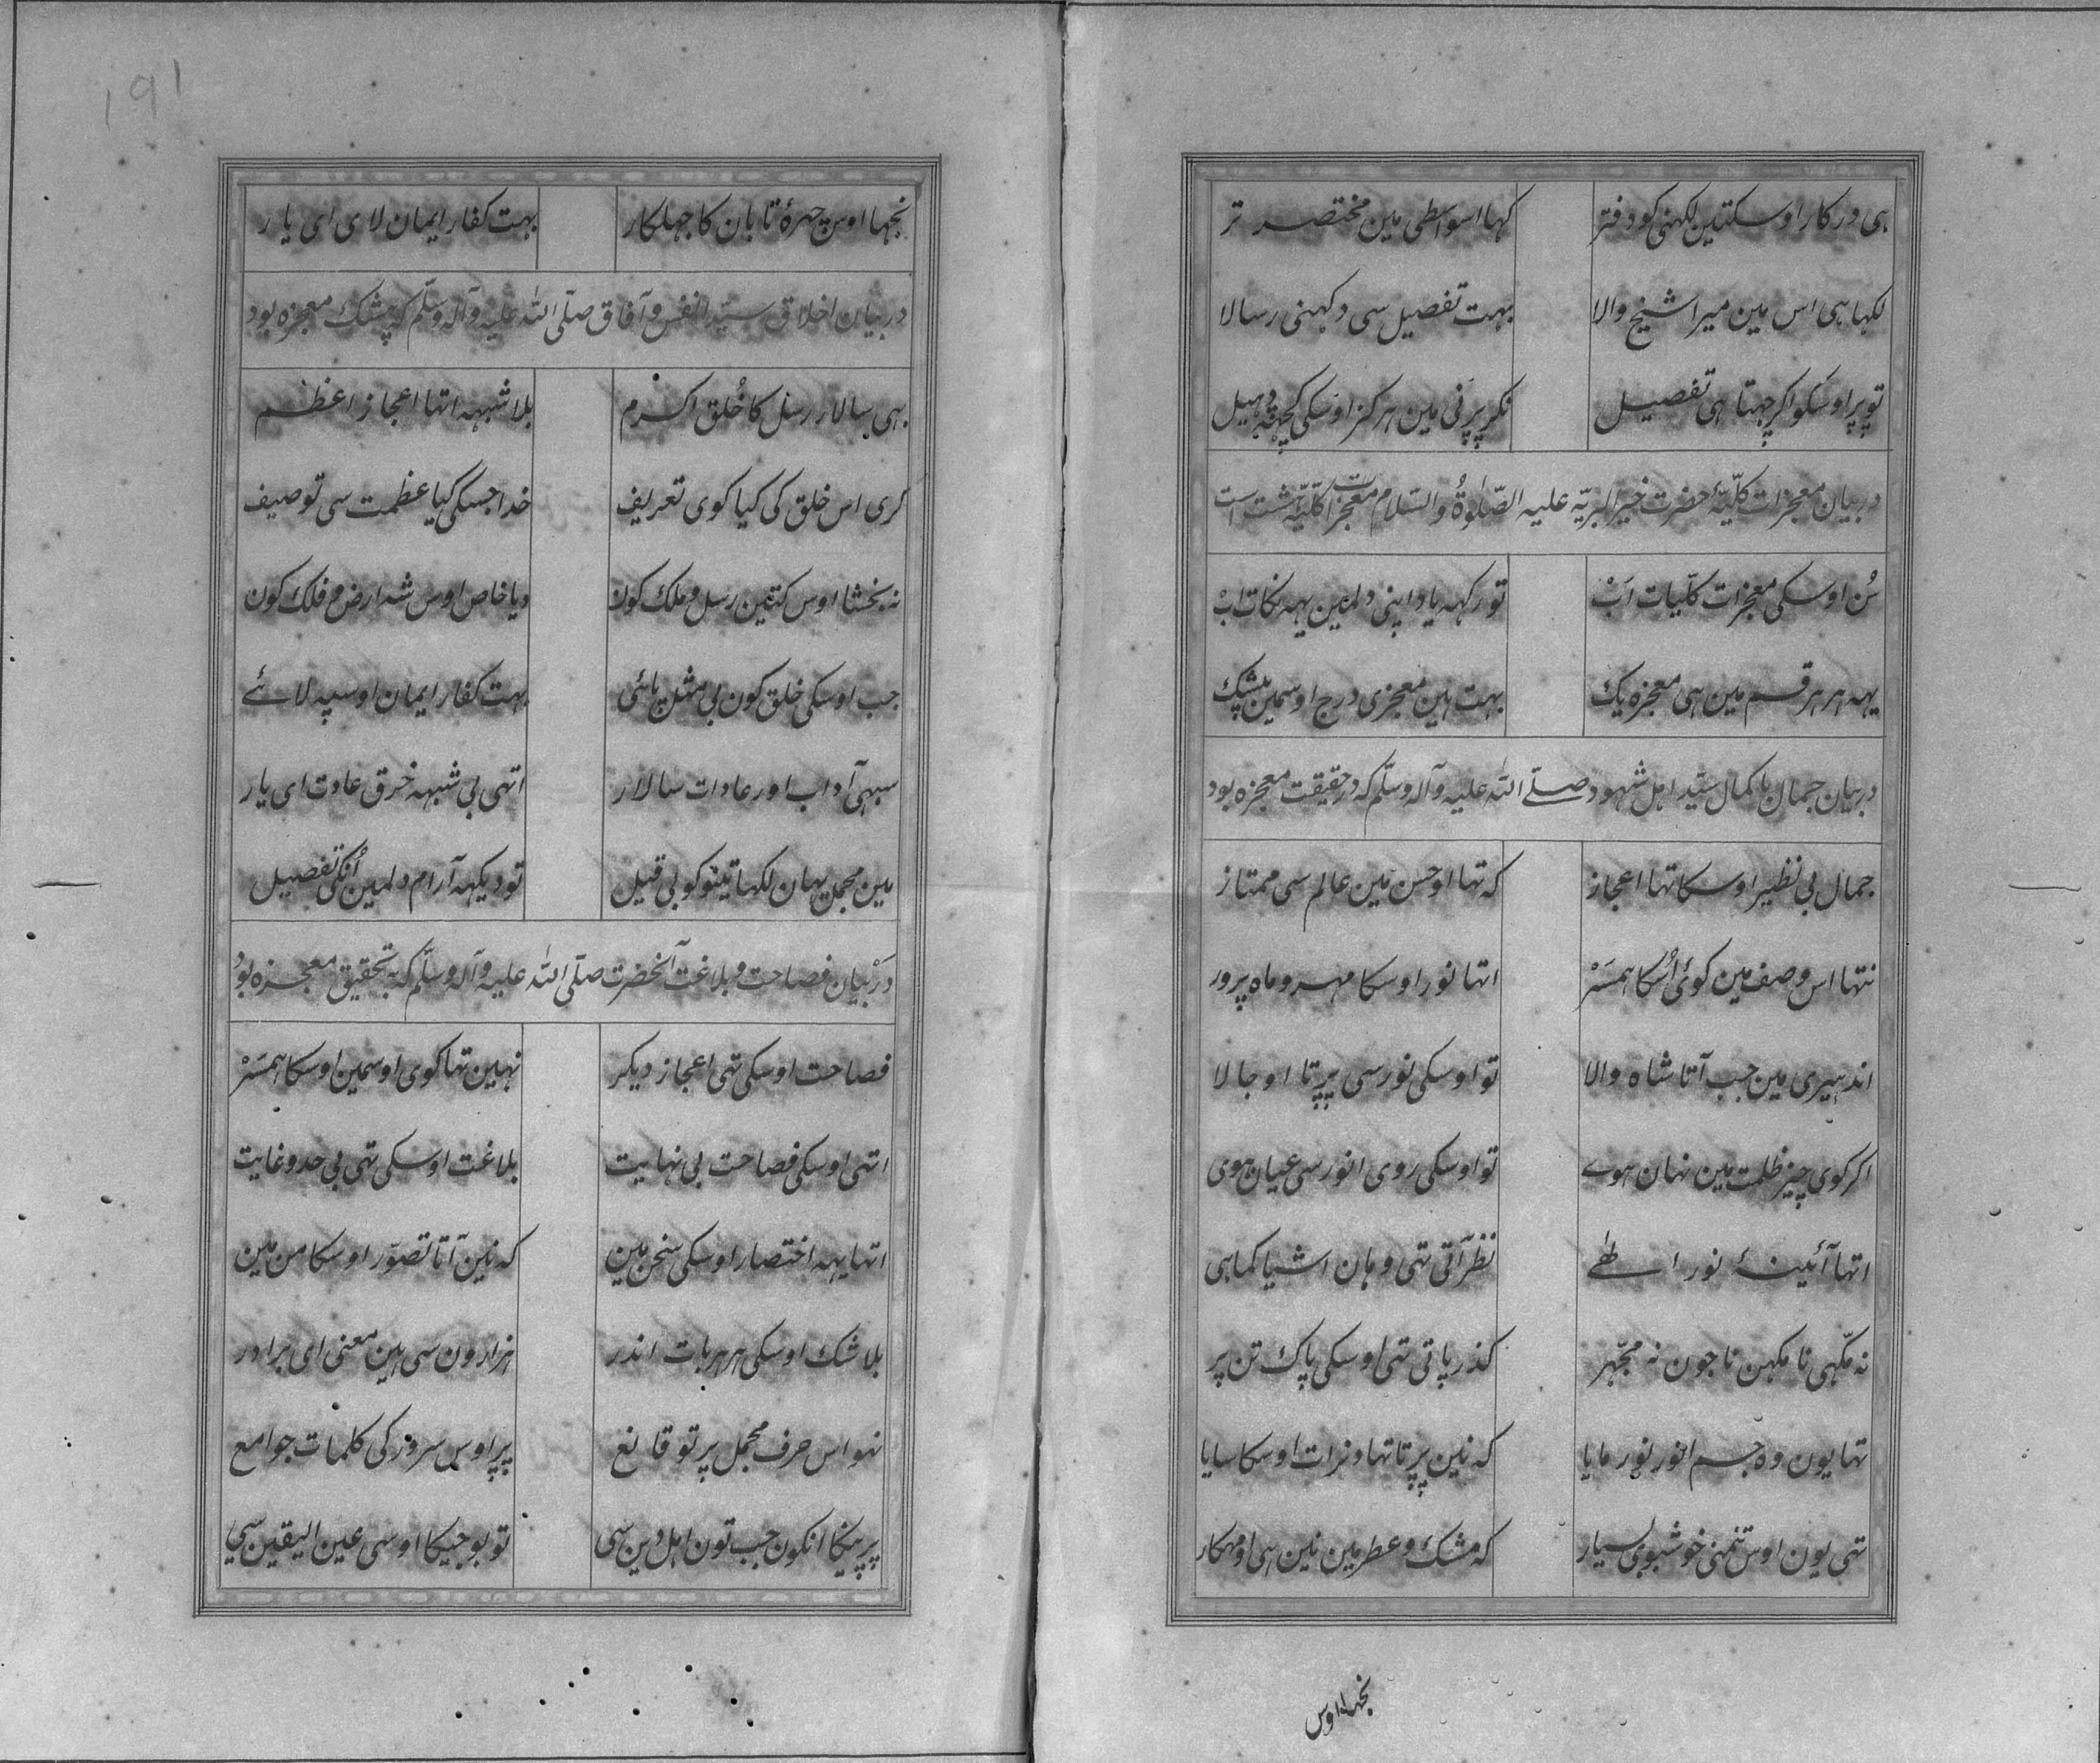 ہی درکار اوسکتیں لکہنی کو دفتر کہا اسواسطی مین مختصر تر
لکہا ہی اس مین میرا شیخ والا بہت تفصیل سی دکہنی رسالا
تو پر اوسکو اکر چہتا ہی تفصیل نکر پرنی مین ہرکز اوسکی کچہہ ڈہیل
در بیان معجزات کلّیّۂ حضرت خیر البریّه علیه الصّلوٰةُ والسّلام معجزات کلّیّه هشت است
سُن اوسکی معجزات کلّیات اَبْ تو رکہہ یاد اپنی دلمین یہہ نکات ابْ
یہہ ہر ہر قسم مین ہی معجزہ یک بہت ہین معجزی درج اوسمین بیشک
در بیان جمال باکمال سیّد اهل شهود صلّے اللّٰه علیه وآله وسلّم که در حقیقت معجزه بود
جمال بی نظیر اوسکا تہا اعجاز کہ تہا او حسن مین عالم سی ممتاز
نتہا اس وصف مین کوئی اُسکا ہمسَرْ اتہا نور اوسکا مہر و ماہ پرور
اندہیری مین جب آتا شاہ والا تو اوسکی نور سی پرتا اوجالا
اکر کوی چیز ظلمت مین نہان ہوے تو اوسکی روی انور سی عیان ہوی
اتہا آئینۂ نور اسطے نظر آتی تہی وہان اشیا کماہی
نہ مکّہی نا مکہن نا جون نہ مچّہر کذر پاتی تہی اوسکی پاک تن پر
تہا یون وہ جسم انور نور مایا کہ نین پرتا تہا دنرات اوسکا سایا
تہی یون اوس تنمنی خوشبوی بسیار کہ مشک و عطر مین نین ہی او مہکار
نجہا اوس
191
نجہا اوس چہرۂ تابان کا جہلکار بہت کفار ایمان لای ای یار
در بیان اخلاق سیّد انفس وآفاق صلّی اللّٰه علیه وآله وسلّم که بیشک معجزه بود
ہی سالار رسل کا خُلق اکرم بلا شبہہ اتہا اعجاز اعظم
کری اس خلق کی کیا کوی تعریف خدا جسکی کیا عظمت سی توصیف
نہ بخشا اوس کتئین رسل و ملک کون دیا خاص اوس شہ ارض و فلک کون
جب اوسکی خلق کون بی مثل پائی بہت کفار ایمان اوسپہ لائے
سبہی آداب اور عادات سالار اتہی بی شبہہ خرق عادت ای یار
مین مجمل یہان لکہا تینو کو بی قیل تو دیکہہ آرام دلمین اُنکی تفصیل
دَرْ بیان فصاحت و بلاغت آنحضرت صلّی اللّٰه علیه وآله وسلّم که به تحقیق معجزه بود
فصاحت اوسکی تہی اعجاز دیکر نہین تہا کوی اوسمین اوسکا ہمسَرْ
اتہی اوسکی فصاحت بی نہایت بلاغت اوسکی تہی بی حد و غایت
اتہا یہہ اختصار اوسکی سخن مین کہ نین آتا تصوّر اوسکا من مین
بلا شک اوسکی ہر ہر بات اندر ہزارون سی ہین معنی ای برادر
نہو اس حرف مجمل پر تو قانع پر اوس سرور کی کلمات جوامع
پر پیکا انکون جب تون اہل دین سی تو بوجیکا اوسی عین الیقین سی